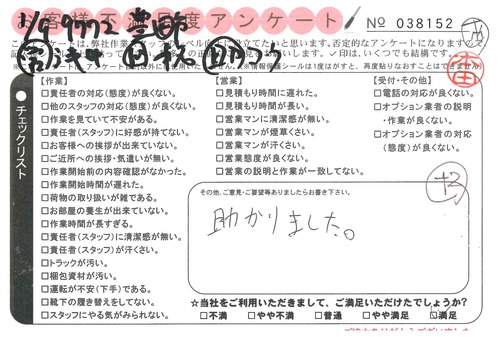 お客様不満足度アンケート
No 038152
【作業】
□責任者の対応(態度)が良くない。
□他のスタッフの対応(態度)が良くない。
□作業を見ていて不安がある。
□責任者(スタッフ)に好感が持てない。
□お客様への挨拶が出来ていない。
□ご近所への挨拶・気遣いが無い。
□作業開始前の内容確認がなかった。
□作業開始時間が遅れた。
□荷物の取り扱いが雑である。
□お部屋の養生が出来ていない。
□作業時間が長すぎる。
□責任者(スタッフ)に清潔感が無い。
□責任者(スタッフ)が汗くさい。
□トラックが汚い。
□梱包資材が汚い。
□運転が不安(下手)である。
□靴下の履き替えをしてない。
□スタッフにやる気がみられない。
【営業】
□見積もり時間に遅れた。
□見積もり時間が長い。
□営業マンに清潔感が無い。
□営業マンが煙草くさい。
□営業マンが汗くさい。
□営業態度が良くない。
□営業の説明と作業が一致してない。
【受付・その他】
□電話の対応が良くない。
□オプション業者の説明
・作業が良くない。
□オプション業者の対応
(態度)が良くない。
チェックリスト
その他、ご意見・ご要望等ありましたらお書き下さい。
助かりました。
☆当社をご利用いただきまして、ご満足いただけたでしょうか?
□不満 □やや不満 □普通 □やや満足 □満足